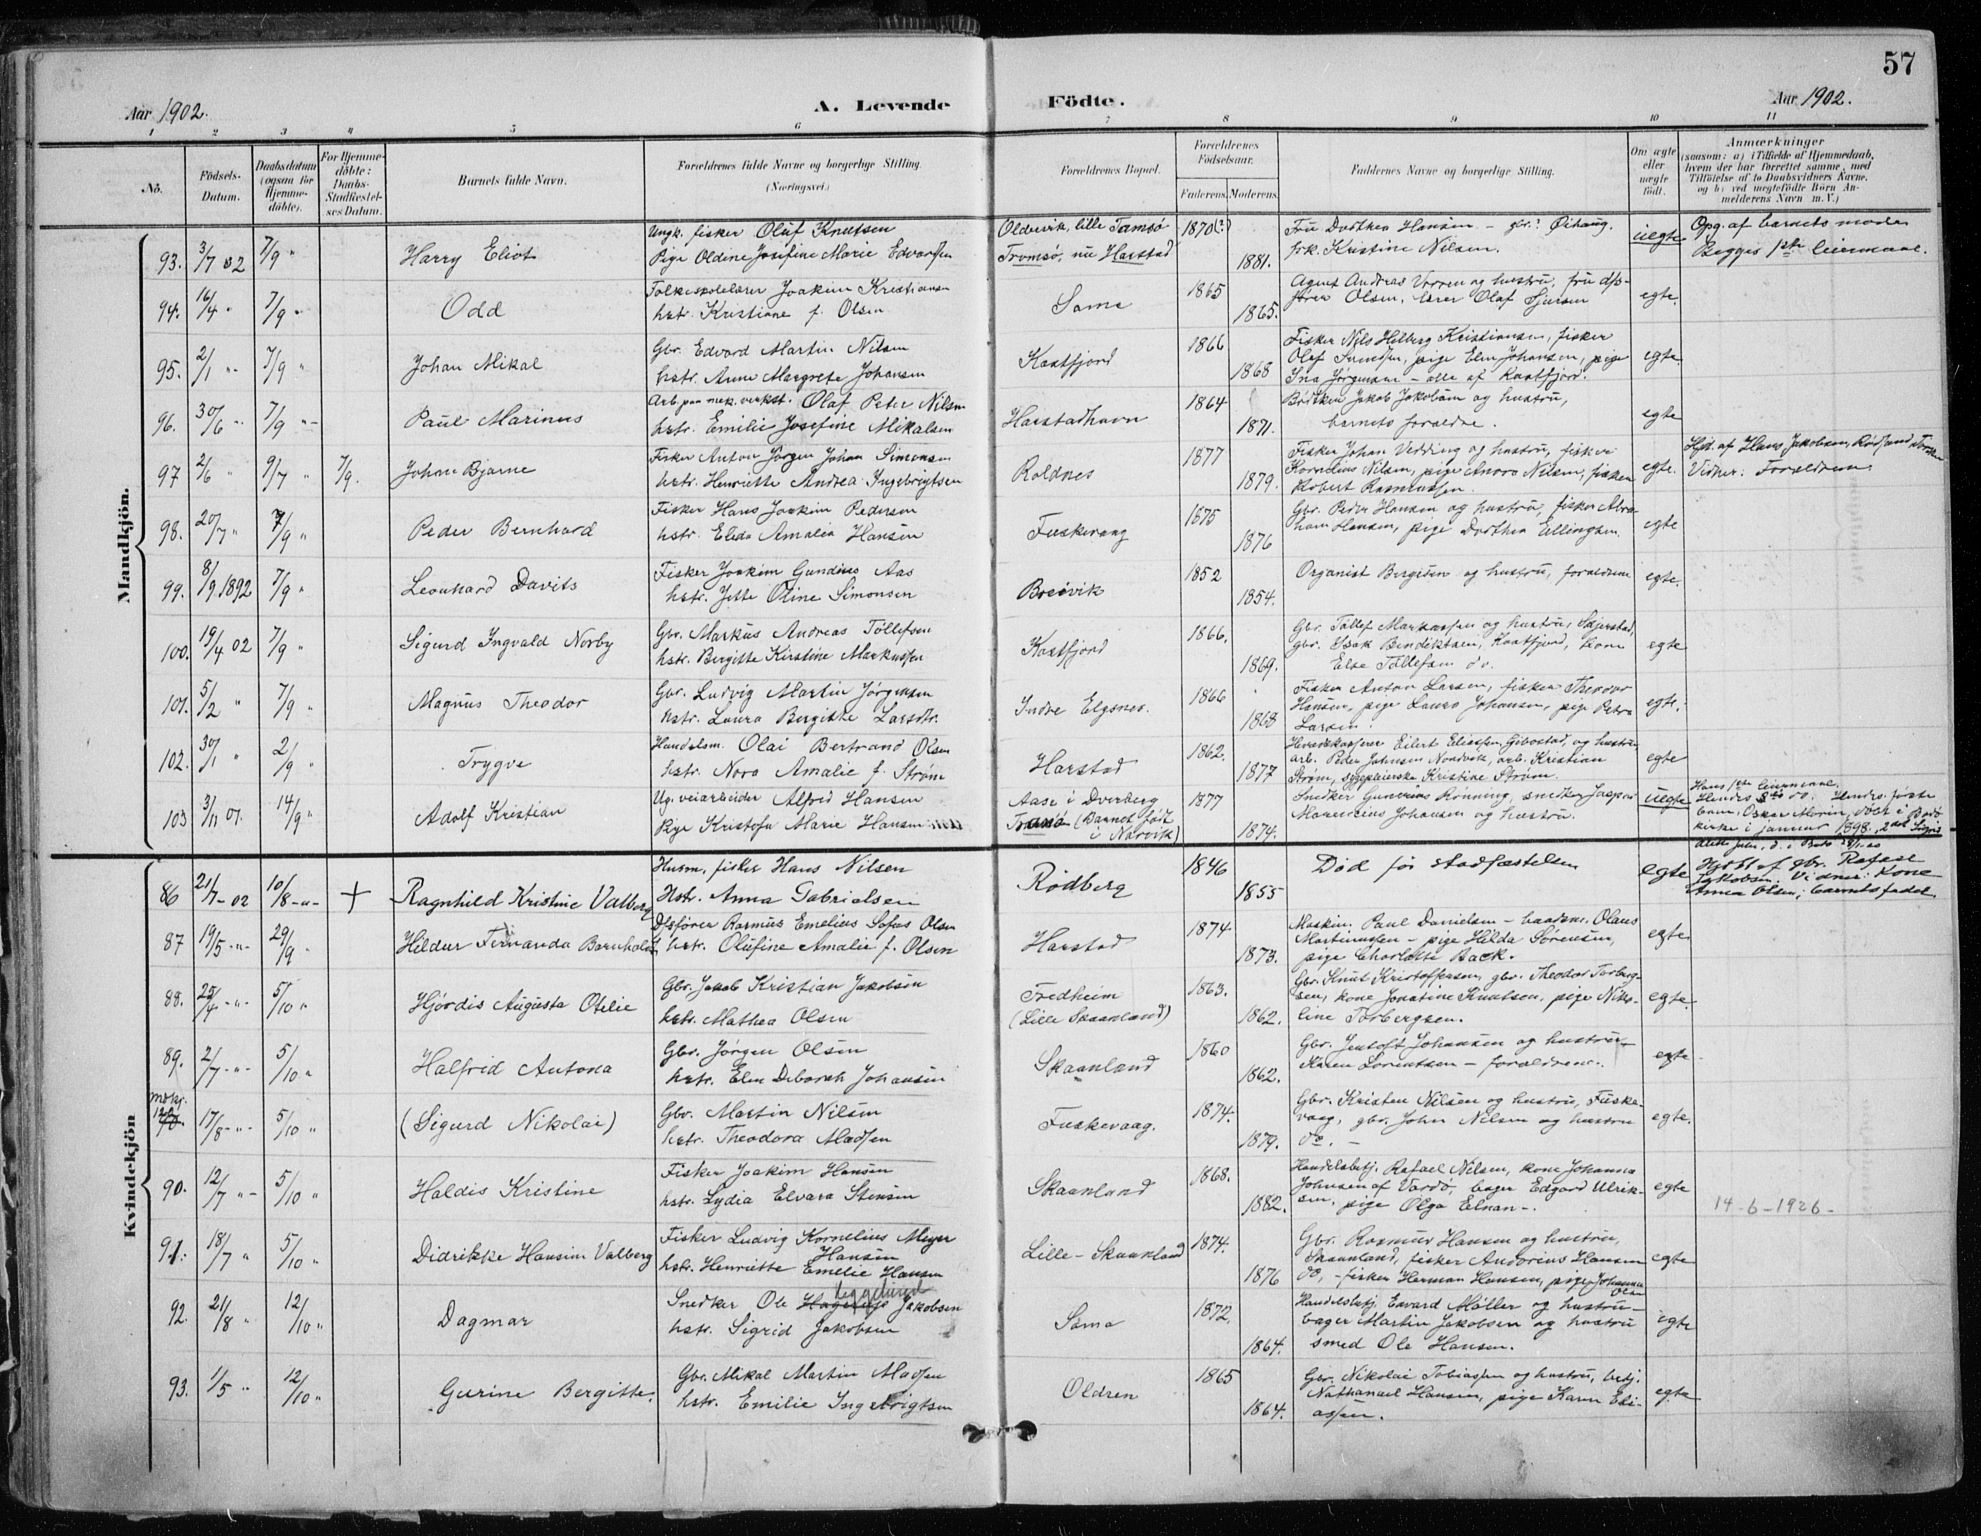 57
Aar 1902.
A. Levende Födte.
Aar 1902.
1 2 3 4 5 6 7 8 9 10 11
No.
Födsels-Datum.
Daabsdatum (ogsaa for Hjemmedöbte).
For Hjemmedöbte: Daabs-Stadfæstelses Datum.
Barnets fulde Navn.
Forældrenes fulde Navne og borgerlige Stilling. (Næringsvei.)
Forældrenes Bopæl.
Forældrenes Födselsaar.
Faderens. Moderens.
Faddernes Navne og borgerlige Stilling.
Om ægte eller uægte födt.
Anmærkninger
(saasom: a) i Tilfælde af Hjemmedaab, hvem der har forrettet samme, med Tilföielse af to Daabsvidners Navne, og b) ved uægtefödte Börn Anmelderens Navn m. V.)
Mandkjön.
93. 3/7 02 7/9 " Harry Eliot
Ungk. fisker Oluf Knutsen
Pige Oldine Josefine Marie Edvardsen
Oldervik, lille Tamsø
Tromsø, nu Harstad
1870(?) 1881.
Fru Dorthea Hansen – gbr. Øihaug.
frk. Kristine Nilsen.
uegte
Opg. af barnets moder
Begges 1ste leiermaal.
94. 16/4 " 7/9 " Odd
Folkeskolelærer Joakim Kristiansen
hstr. Kristiane f. Olsen
Sama
1865 1865.
Agent Andreas Voren og hustru, fru dfs-
fører Olsen, lærer Olaf
egte.
95. 2/1 " 7/9 " Johan Mikal
Gbr. Edvard Martin Nilsen
hstr. Anne Margrete Johansen
Kastfjord
1866 1868
Fisker Nils Hilberg Kristiansen, fisker
Olef, pige Elen Johansen, pige
Ina Jørgensen – alle af Kastfjord.
egte
96. 30/6 " 7/9 " Paul Marinus
Arb. paa mek. verkst. Olaf Peter Nilsen
hstr. Emilie Josefine Mikalsen
Harstadhavn
1864 1871.
Bødtker Jakob Jakobsen og hustru,
barnets forældre.
egte
97 2/6 " 9/7 " 7/9. Johan Bjarne
Fisker Anton Jørgen Johan Simonsen
hstr. Henriette Andrea Ingebrigtsen
Roldnes
1877 1879.
Fisker Johan Vedding og hustru, fisker
Kornelius Nilsen, pige Anora Nilsen, fisker
Robert Rasmussen.
egte.
Hjd. af Hans Jakobsen, Rødsand,
Vidner: Forældrene
98. 20/7 " 7/9 " Peder Bernhard
Fisker Hans Joakim Pedersen
hstr. Elida Amalia Hansen
Fuskevaag
1875 1876
Gbr. Peder Hansen og hustru, fisker Abra-
ham Hansen, pige Dorthea Ellingsen.
egte
99. 8/9 1892 7/9 " Leonhard Davits
Fisker Joakim Gundinus Aas
hstr. Jette Oline Simonsen
Breivik
1852 1854.
Organist Bergesen og hustru, forældrene
egte.
100. 19/4 02 7/9 " Sigurd Ingvald Norby
Gbr. Markus Andreas Tollefsen
hstr. Bergitte Kirstine Markussen
Kastfjord
1866. 1869.
Gbr. Tollef Markussen og hustru,
gbr. Isak Bendiktsen, Kastfjord, kone
Else Tollefsen do.
egte
101. 5/2 " 7/9 " Magnus Theodor
Gbr. Ludvig Martin Jørgensen
hstr. Laura Bergitte Larsdtr.
Indre Elgsnes.
1866 1868
Fisker Anton Larsen, fisker Theodor
Hansen, pige Laura Johansen, pige Petra
Larsen.
egte.
102. 30/1 " 2/9 " Trygve
Handelsm. Olai Bertrand Olsen
hstr. Nora Amalie f. Strøm
Harstad
1862. 1877
Herredskasserer Eilert Eliassen, Gibostad, og hustru
arb. Peder Johnsen Nordvik, arb. Kristian
Strøm, sygepleierske Kristine Strøm.
egte
103 3/11 01. 14/9 " Adolf Kristian
Ug. veiarbeider Alfred Hansen
Pige Kristofa Marie Hansen
Aase i Dverberg
Tranø (Barnet født
i Narvik)
1877 1874.
Snedker Gunerius Rønning, snedker Jaspar
Marensius Johansen og hustru.
uegte
Hans 1ste leiermaal,
Hendes 3die do. Hendes første
barn, Oskar Morin, døbt i Bodø
kirke i januar 1898, 2det
Kvindekjön
86 21/7 - 02 10/8 - " - + Ragnhild Kristine Valberg
Husm., fisker Hans Nilsen
Hstr. Anna Gabrielsen
Rødberg
1846 1855
Død før stadfæstelsen
egte
Hjdbt af gbr. Rafael
Jakobsen. Vidner: Kone
Anna Olsen, barnets fader
87 19/5 - " - 29/9 " Hildur Fernanda Bornholdt
Dfsfører Rasmus Emelius Sofus Olsen
hstr. Olufine Amalie f. Olsen
Harstad
1874 1873.
Maskin. Paul Danielsen – baadsm. Olaus
Martinussen – pige Hilda Sørensen,
pige Charlotte Back.
egte.
88. 25/4 - " - 5/10 " Hjørdis Augusta Otelie
Gbr. Jakob Kristian Jakobsen
hstr. Mathea Olsen
Fredheim
(Lille Skaanland)
1863. 1862.
Gbr. Knut Kristoffersen, gbr. Theodor Torberg-
sen, kone Jonatine Knutsen, pige Niko-
line Torbergsen.
egte.
89. 2/7 - " - 5/10 " Halfrid Antona
Gbr. Jørgen Olsen
hstr. Elen Deborah Johansen
Skaanland
1860 1862.
Gbr. Jentoft Johansen og hustru
Karen Lorentsen – forældrene.
egte
17/8 - " - 5/10 " (Sigurd Nikolai)
Gbr. Martin Nilsen
hstr. Theodora Madsen
Fuskevaag.
1874. 1879.
Gbr. Kristen Nilsen og hustru, Fuske-
vaag, gbr. John Nilsen og hustru
do. –
egte.
90. 12/7 " - 5/10 " Haldis Kristine
Fisker Joakim Hansen
hstr. Lydia Elvara Stensen
Skaanland
1868. 1882.
Handelsbetj. Rafael Nilsen, kone Johanna
Johnsen af Vardø, bager Edgard Ulrik-
sen, pige Olga Elnan –.
egte
14-6-1926-
91. 18/7 " 5/10 " Didrikke Hansine Valberg
Fisker Ludvig Kornelius Meyer
Hansen
hstr. Henriette Emelie Hansen
Lille-Skaanland
1874. 1876
Gbr. Rasmus Hansen og hustru,
Skaanland, fisker Andorius Hansen
do, – fisker Herman Hansen, pige Johanna
Olsen
egte
92. 21/8 " 12/10 " Dagmar
Snedker Ole Jakobsen
hstr. Sigrid Jakobsen
Sama
1872. 1864.
Handelsbetj. Edvard Møller og hustru –
bager Martin Jakobsen og hustru
smed Ole Hansen.
egte
93. 1/5 " 12/10 " Gurine Bergitte.
Gbr. Mikal Martin Madsen
hstr. Emilie Ingebrigtsen
Oldren
1865 1864.
Gbr. Nikolai Tobiassen og hustru, betj.
Nathanael Hansen, pige Karen Eli-
assen.
egte